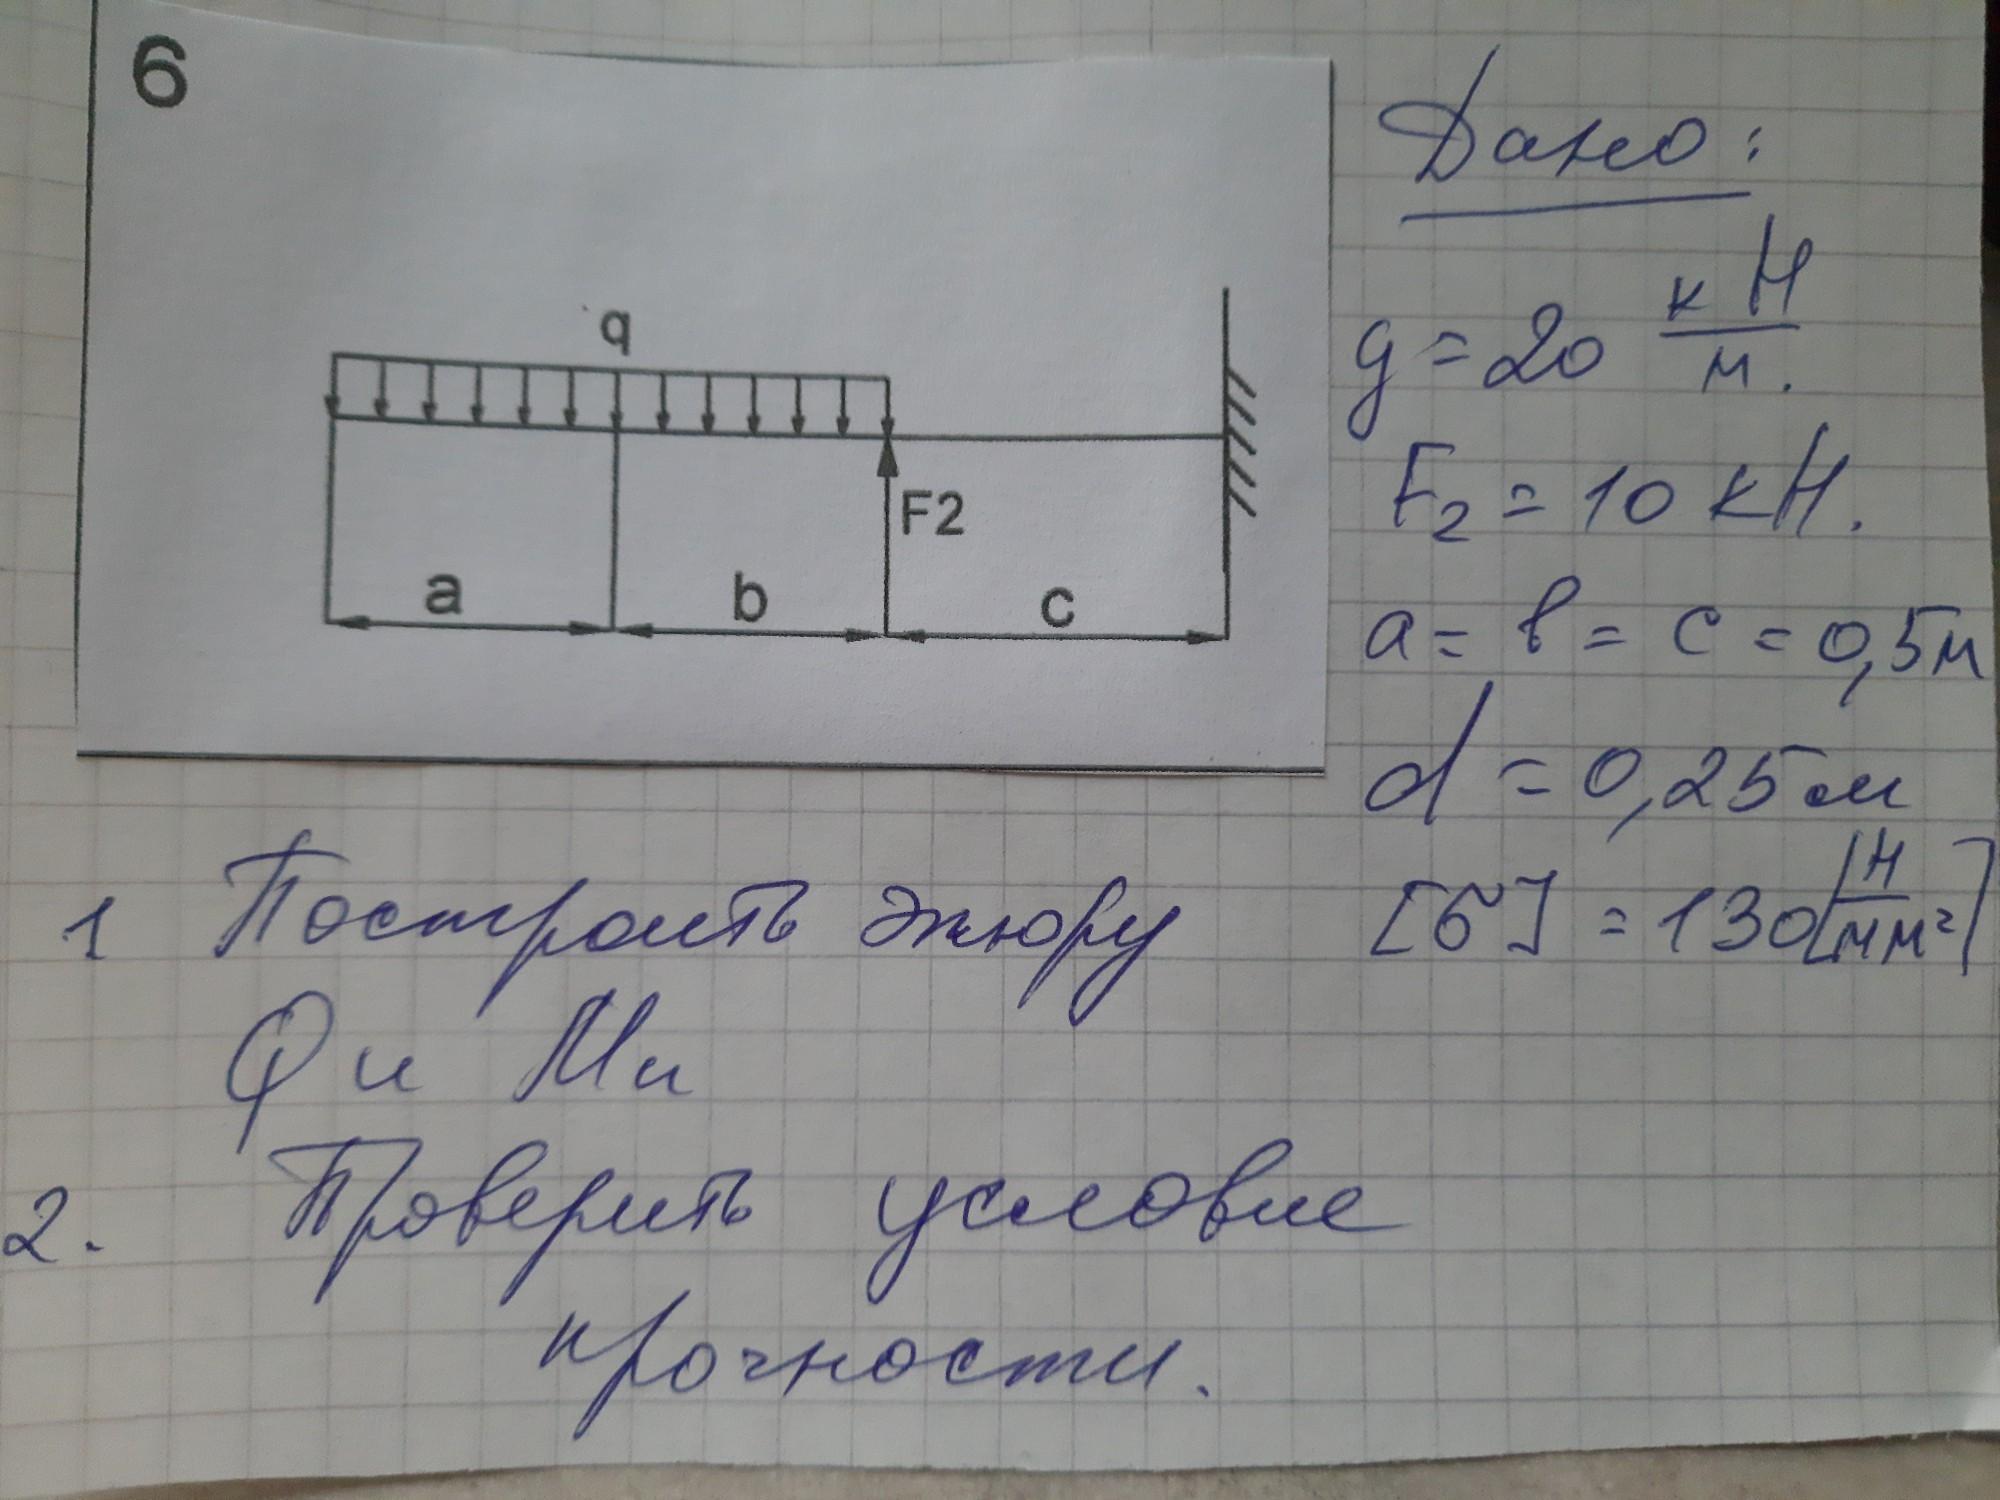 6
Дано:
q
g = 20 кН/м.
F2
F₂ = 10 кН.
a b c
a = b = c = 0,5м
d = 0,25м
[σ] = 130 [Н/мм²]
1 Построить эпюру
Q и Mи
2. Проверить условие
прочности.